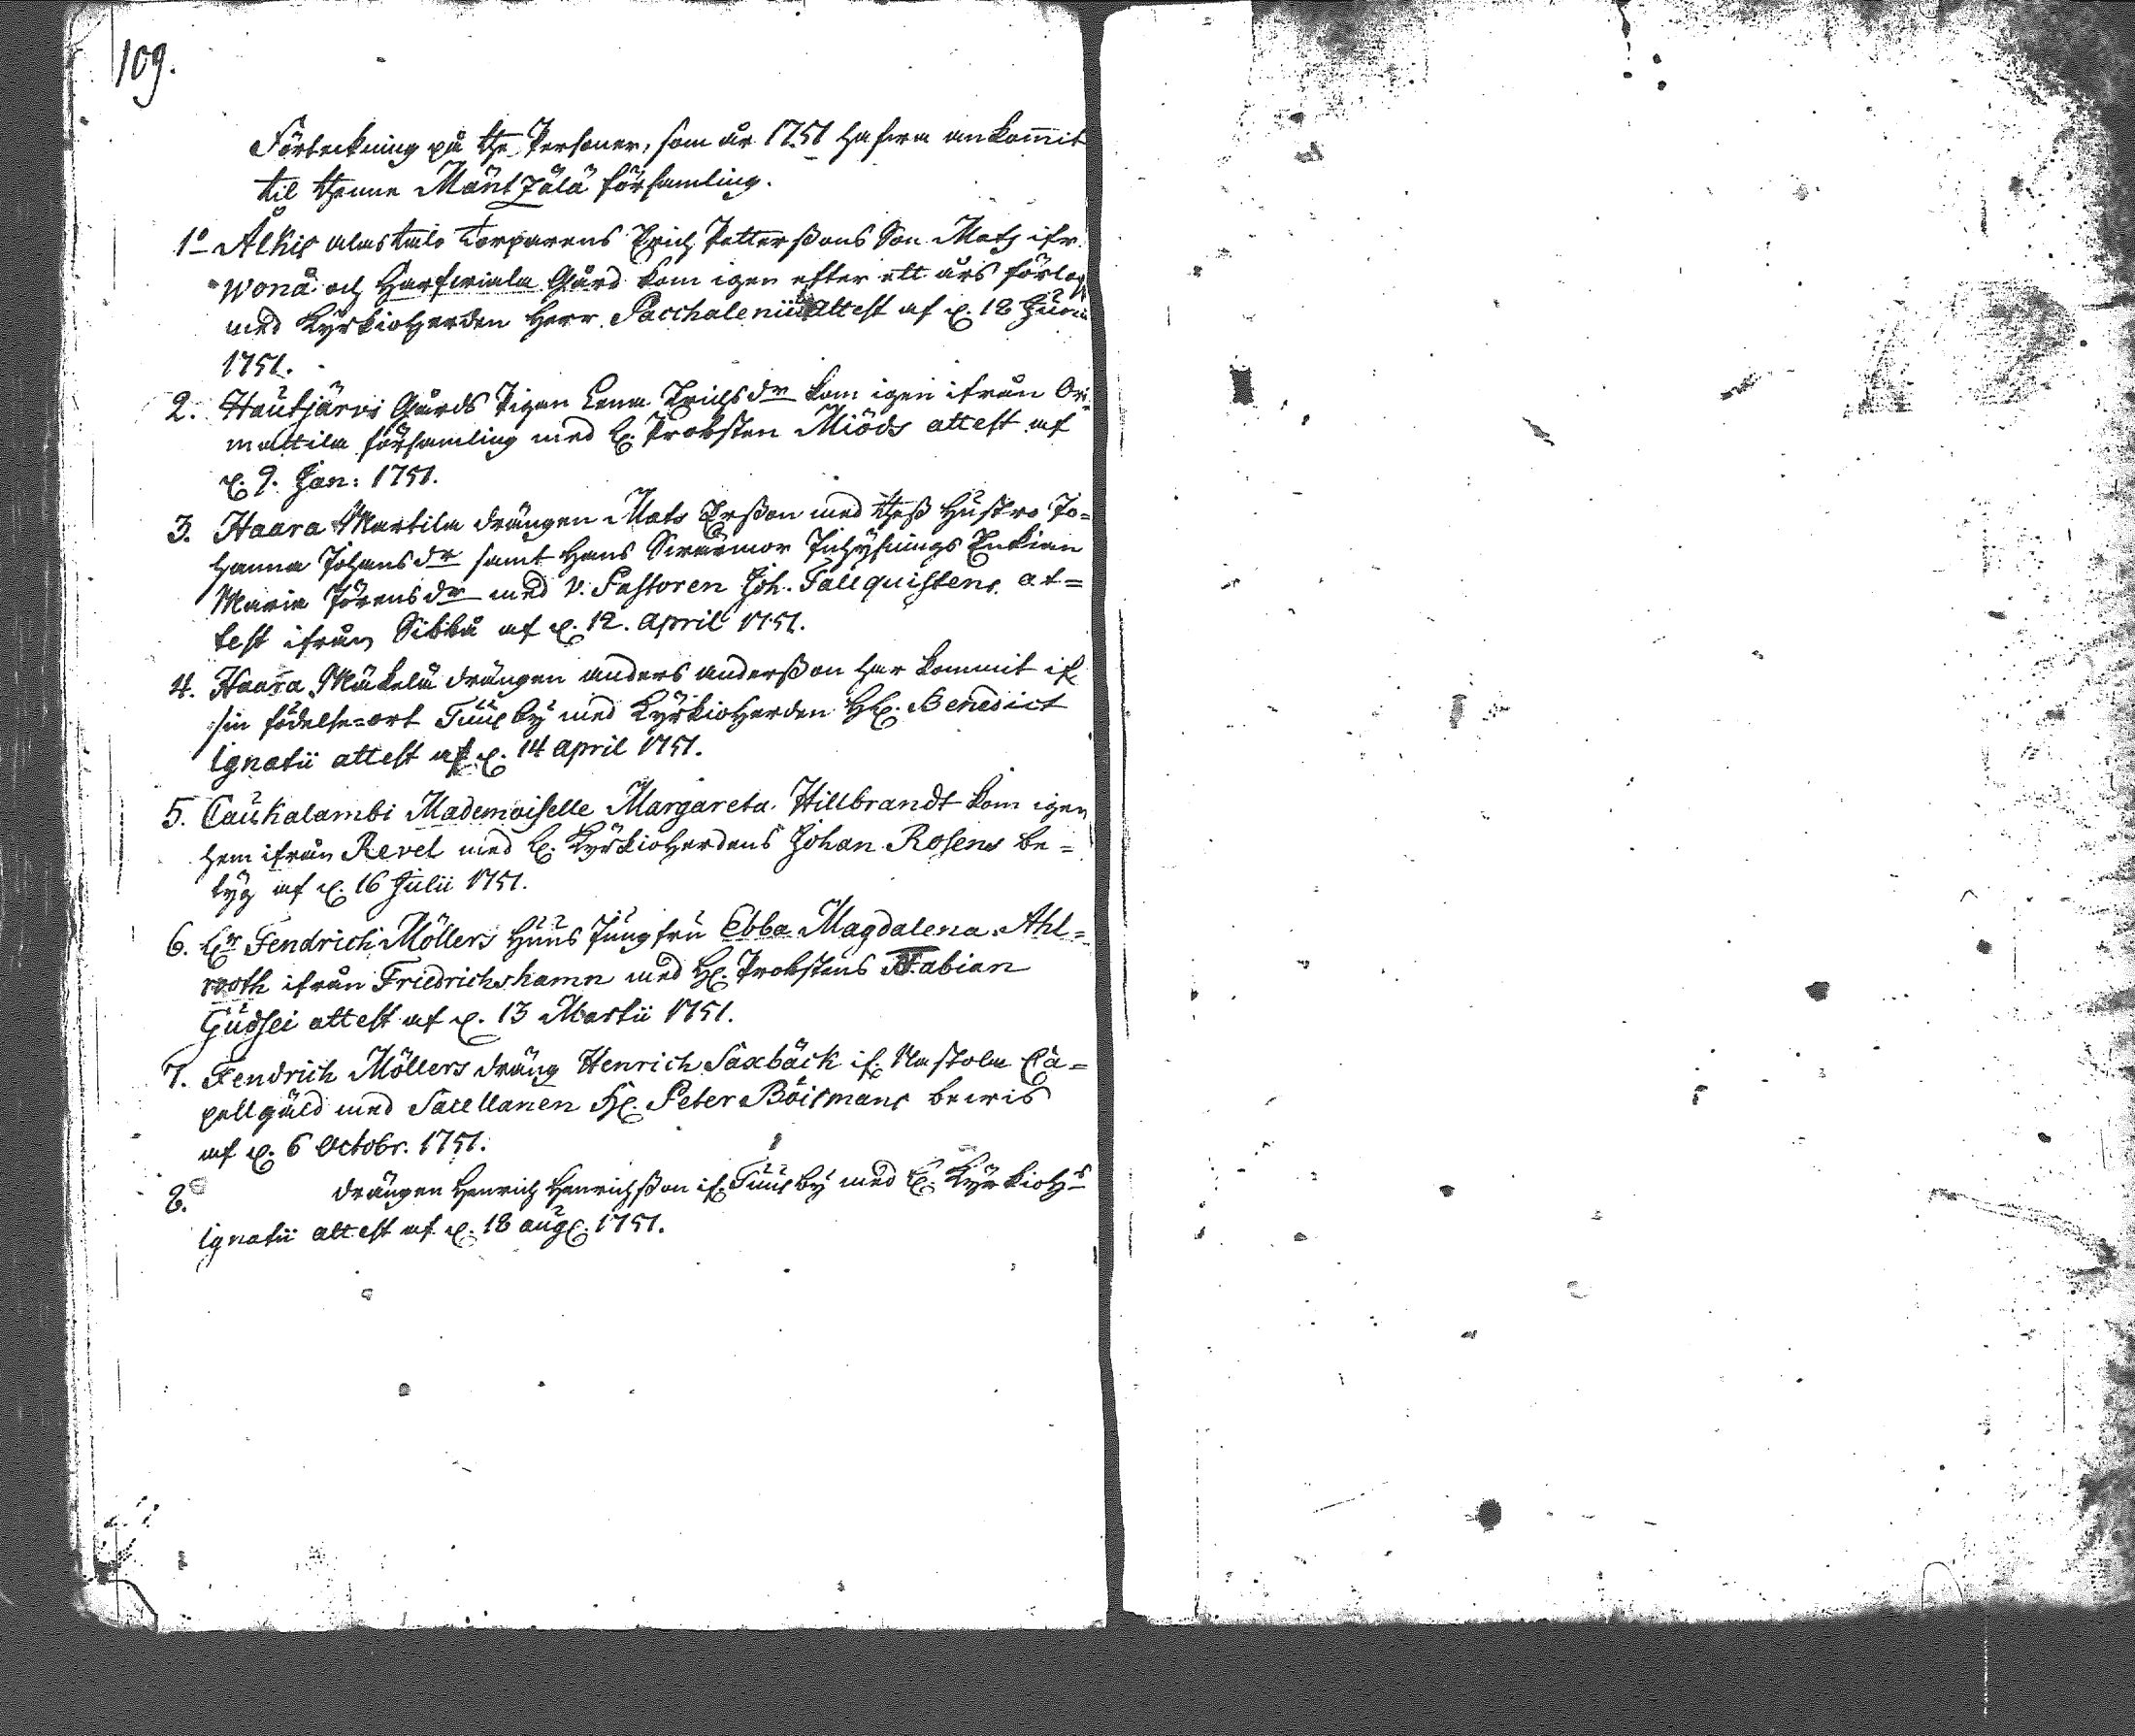 109.
Förteckning på the Personer, som år 1751 hafwa ankommit
til thenne Mäntzälä församling.
1o Alkis alastalo Torparens Erich Pettersons Son Matz ifr.
Wonå och Harfwiala Gård kom igen efter ett års förlop
med Kyrkioherden Herr Paschalenii attest af d. 18 Junii
1751.
2. Hautjärvi Gårds Pigan Lena Erichsdr kom igen ifrån Or-
mattila församling med H. Probsten Miöds attest af
d. 9. Jan: 1751.
3. Haara Martila drängen Mats Ersson med thess Hustro Jo=
hanna Johansdr samt hans Swärmor Inhysnings Enkian
Maria Jöransdr med V. Pastoren Joh. Fallquistens at=
test ifrån Sibbå af d. 12. April 1751.
4. Haara Mäkelä drängen Anders Andersson har kommit if.
sin födelse=ort Tuusby med Kyrkioherden H. Benedict
Ignatii attest af d. 14 April 1751.
5. Caukalambi Mademoiselle Margareta Hillbrandt kom igen
hem ifrån Revel med H. Kyrkioherdens Johan Rosens be=
tyg af d. 16 Julii 1751.
6. Hr Fendrich Möllers Huus Jungfru Ebba Magdalena Ahl=
rooth ifrån Friedrichshamn med H. Probstens Fabian
Gudsei attest af d. 13 Martii 1751.
7. Fendrich Möllers dräng Henrich Saxbäck if. Nastola Ca=
pellgäld med Sacellanen H. Peter Böismans bewis
af d. 6 Octobr. 1751.
8. drängen Henrich Henrichsson if. Tuusby med H. Kyrkiohs
Ignatii attest af d. 18 aug. 1751.